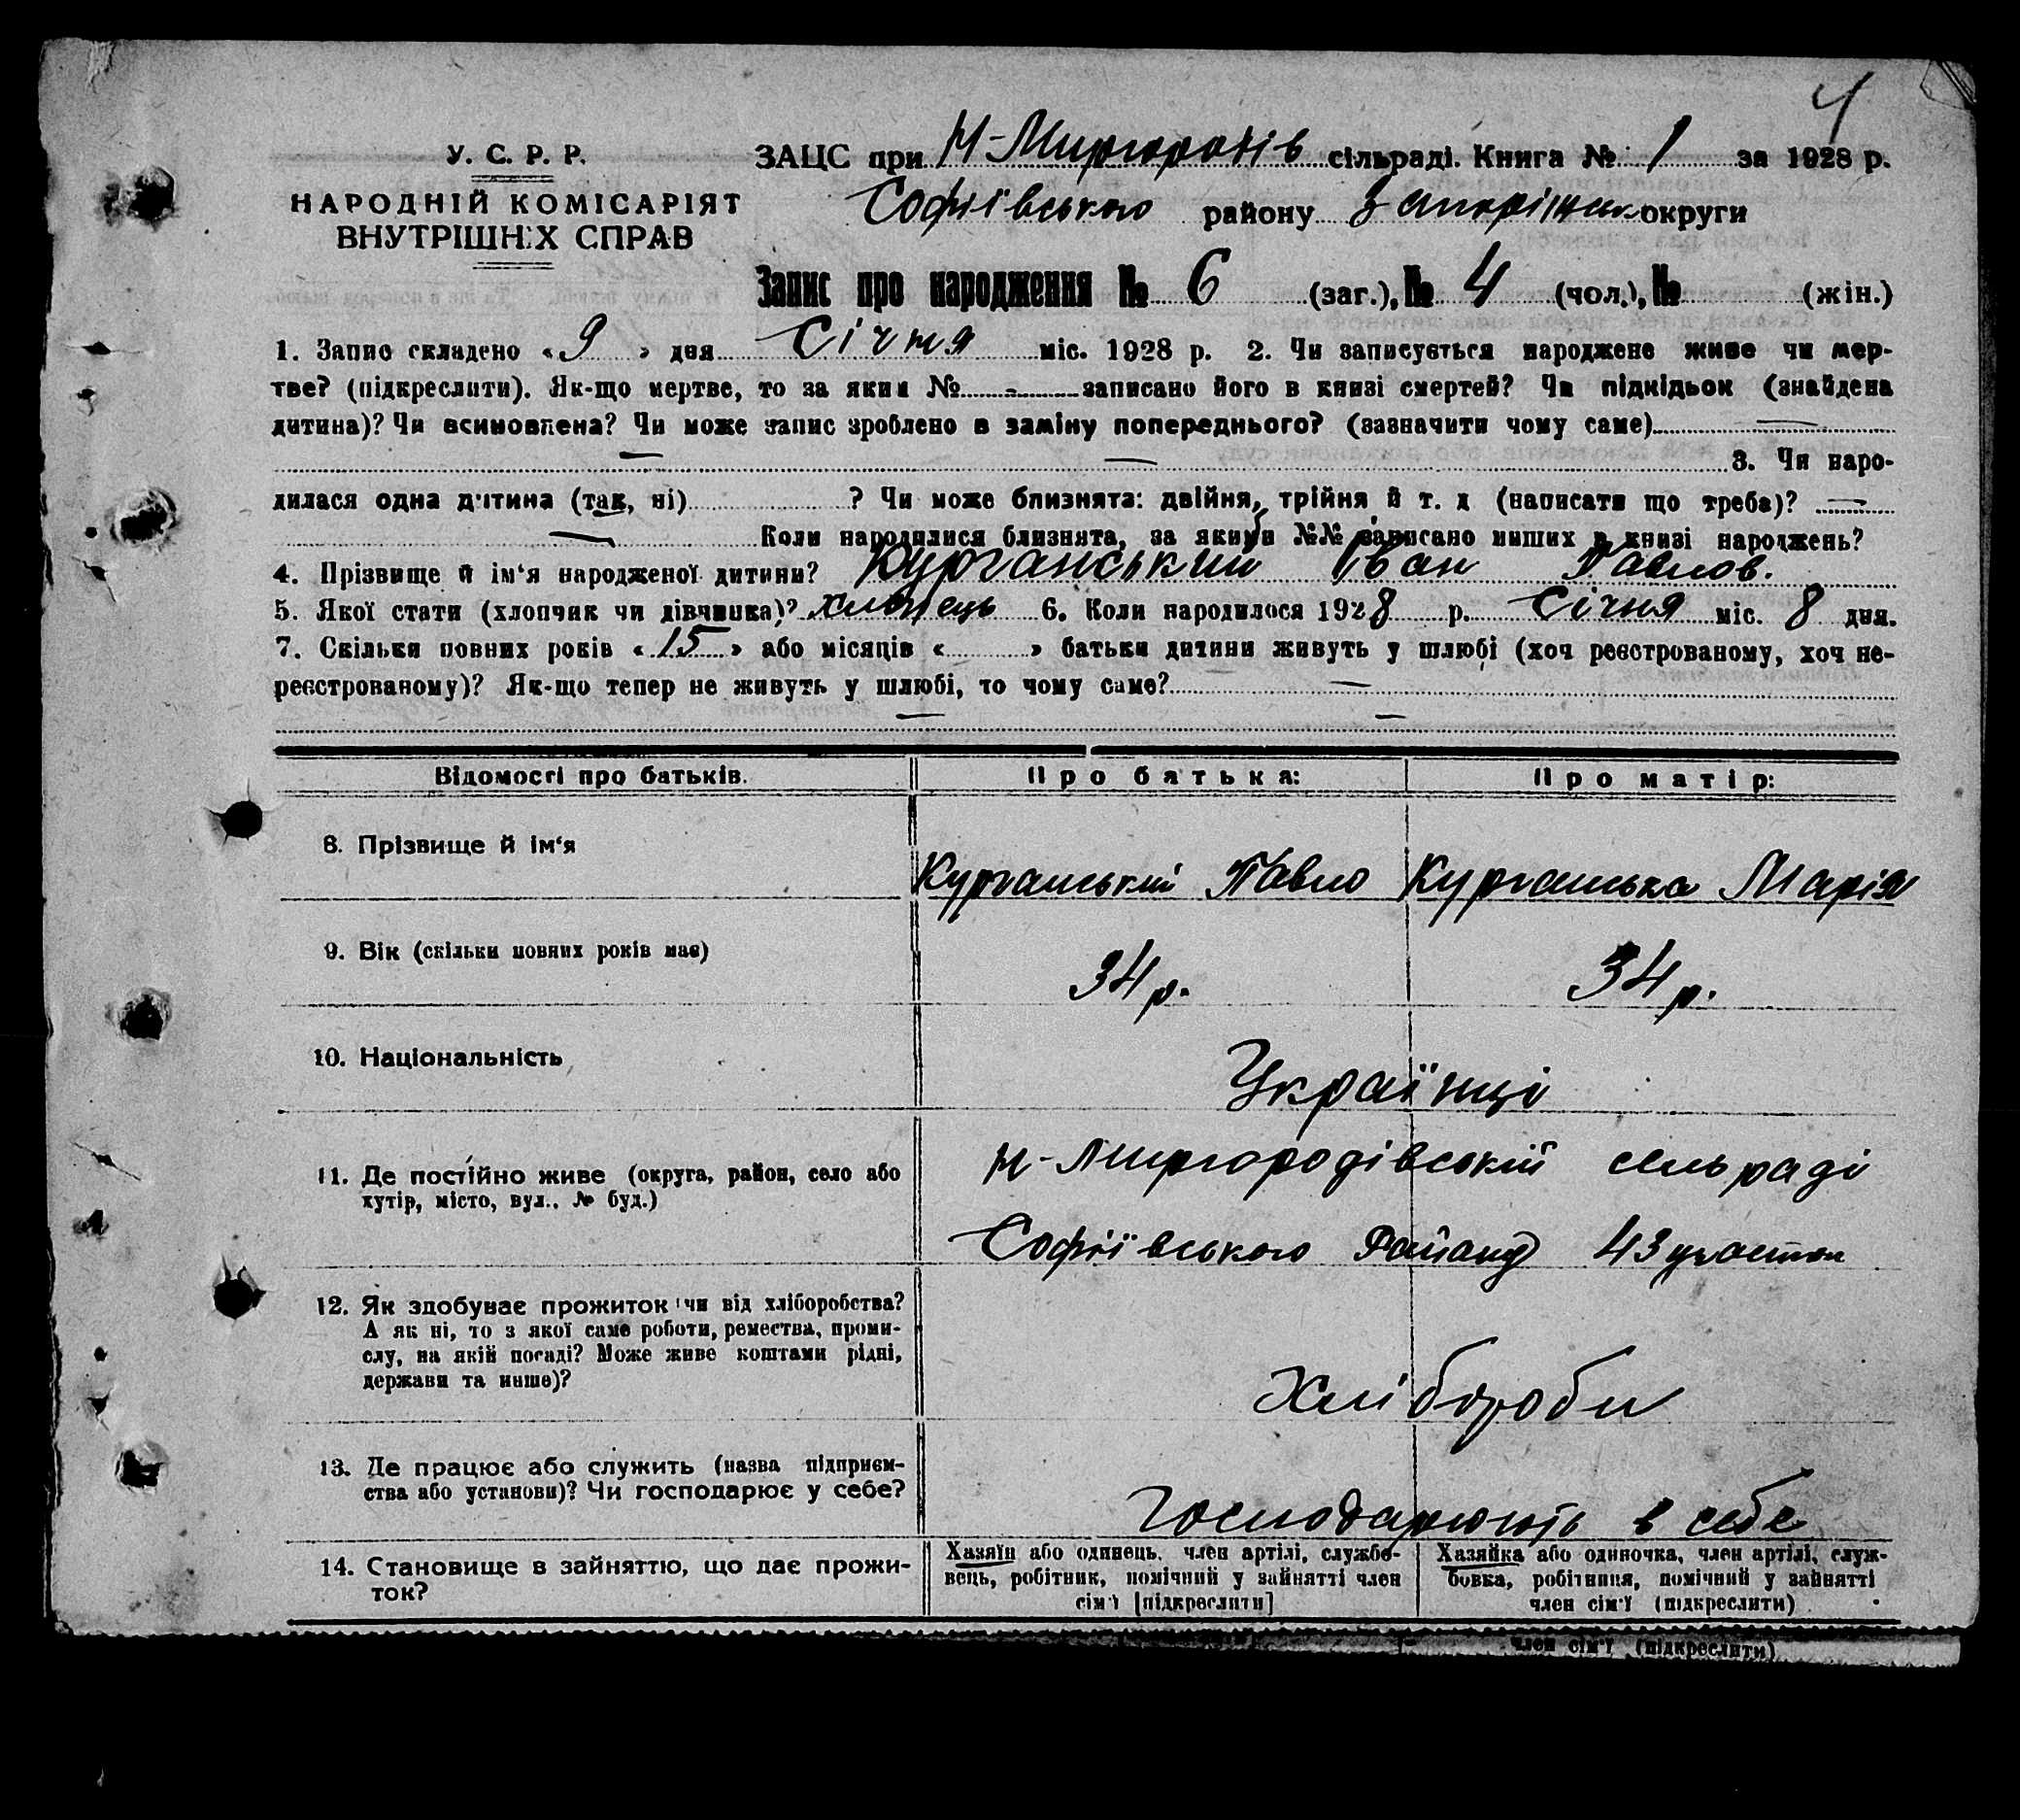 4
У. С. Р. Р.
НАРОДНІЙ КОМІСАРІЯТ
ВНУТРІШНІХ СПРАВ
ЗАЦС при Н-Миргородів сільраді. Книга № 1 за 1928 р.
Софіївського району Запоріжик округи
Запис про народження № 6 (заг.), № 4 (чол.), № (жін.)
1. Запис складено « 9 » дня Січня міс. 1928 р. 2. Чи записується народжене живе чи мер-
тве? (підкреслити). Як-що мертве, то за яким № - записано його в книзі смертей? Чи підкідьок (знайдена
дитина)? Чи всиновлена? Чи може запис зроблено в заміну попереднього? (зазначити чому саме) —
— — 3. Чи наро-
дилася одна дитина (так, ні) ? Чи може близнята: двійня, трійня й т. д (написати що треба)? —
— Коли народилися близнята, за якими №№ записано инших в книзі народжень?
4. Прізвище й ім‘я народженої дитини? Курганський Іван Павлов.
5. Якої стати (хлопчик чи дівчинка)? хлопець 6. Коли народилося 1928 р. Січня міс. 8 дня.
7. Скільки повних років « 15 » або місяців « » батьки дитини живуть у шлюбі (хоч реєстрованому, хоч не-
реєстрованому)? Як-що тепер не живуть у шлюбі, то чому саме? —
— —
Відомості про батьків. Про батька: Про матір:
8. Прізвище й ім‘я Курганський Павло Курганська Марія
9. Вік (скільки повних років має) 34 р. 34 р.
10. Національність Українці
11. Де постійно живе (округа, район, село або
хутір, місто, вул.. № буд.)
Н-Миргородівській сельраді
Софіївського Району 43 участок
12. Як здобуває прожиток чи від хліборобства?
А як ні, то з якої саме роботи, ремества, проми-
слу, на якій посаді? Може живе коштами рідні,
держави та инше)?
Хлібороби
13. Де працює або служить (назва підприєм-
ства або установи)? Чи господарює у себе?
Господарюють в себе
14. Становище в зайняттю, що дає прожи-
ток?
Хазяїн або одинець, член артілі, службо-
вець, робітник, помічний у зайнятті член
сім‘ї [підкреслити]
Хазяйка або одиночка, член артілі, служ-
бовка, робітниця, помічний у зайнятті
член сім‘ї (підкреслити)
член сім‘ї (підкреслити)